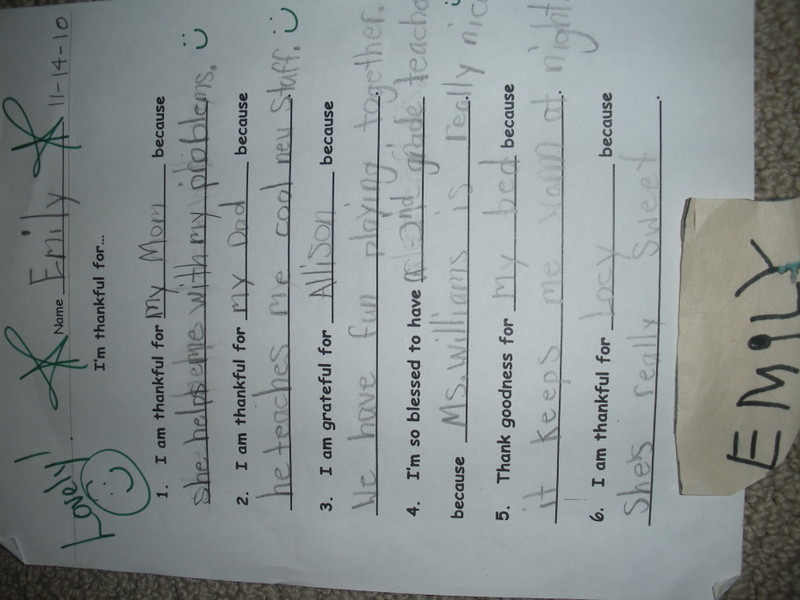 Lovely!
Name Emily 11-14-10
I'm thankful for...
1. I am thankful for My Mom because
she helpseme with my ploblems.
2. I am thankful for my Dad because
he teaches me cool new stuff.
3. I am grateful for Allison because
We have fun playing together.
4. I'm so blessed to have grade teacher
because Ms. Williams is really nice
5. Thank goodness for my bed because
it keeps me warm at night.
6. I am thankful for Locy because
She's really sweet.
EMILY